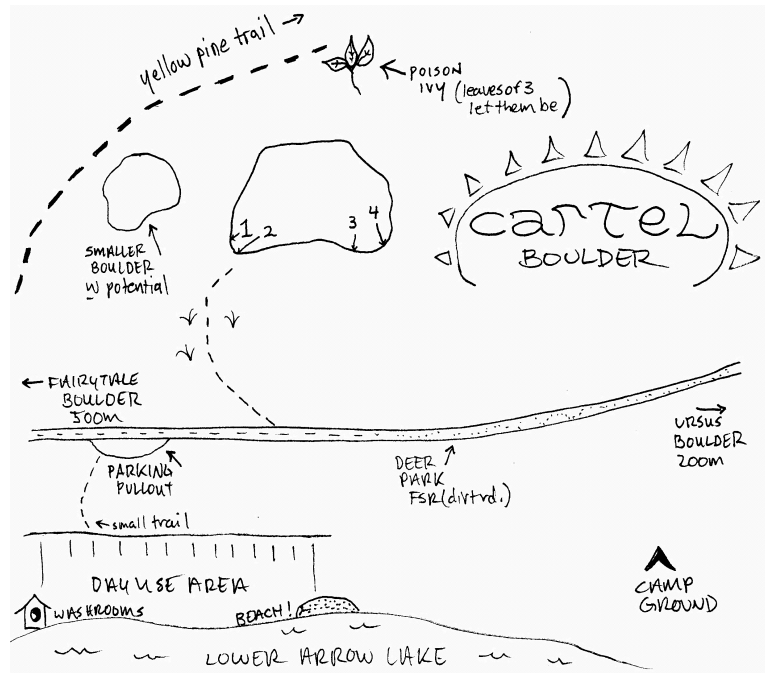 yellow pine trail →
POISON
IVY (leaves of 3
let them be)
CARTEL
BOULDER
1
2
3
4
SMALLER
BOULDER
w potential
← FAIRYTALE
BOULDER
500m
PARKING
PULLOUT
DEER
PARK
FSR (dirt rd.)
URSUS
BOULDER
200m
← small trail
DAY USE AREA
WASHROOMS
BEACH!
CAMP
GROUND
LOWER ARROW LAKE